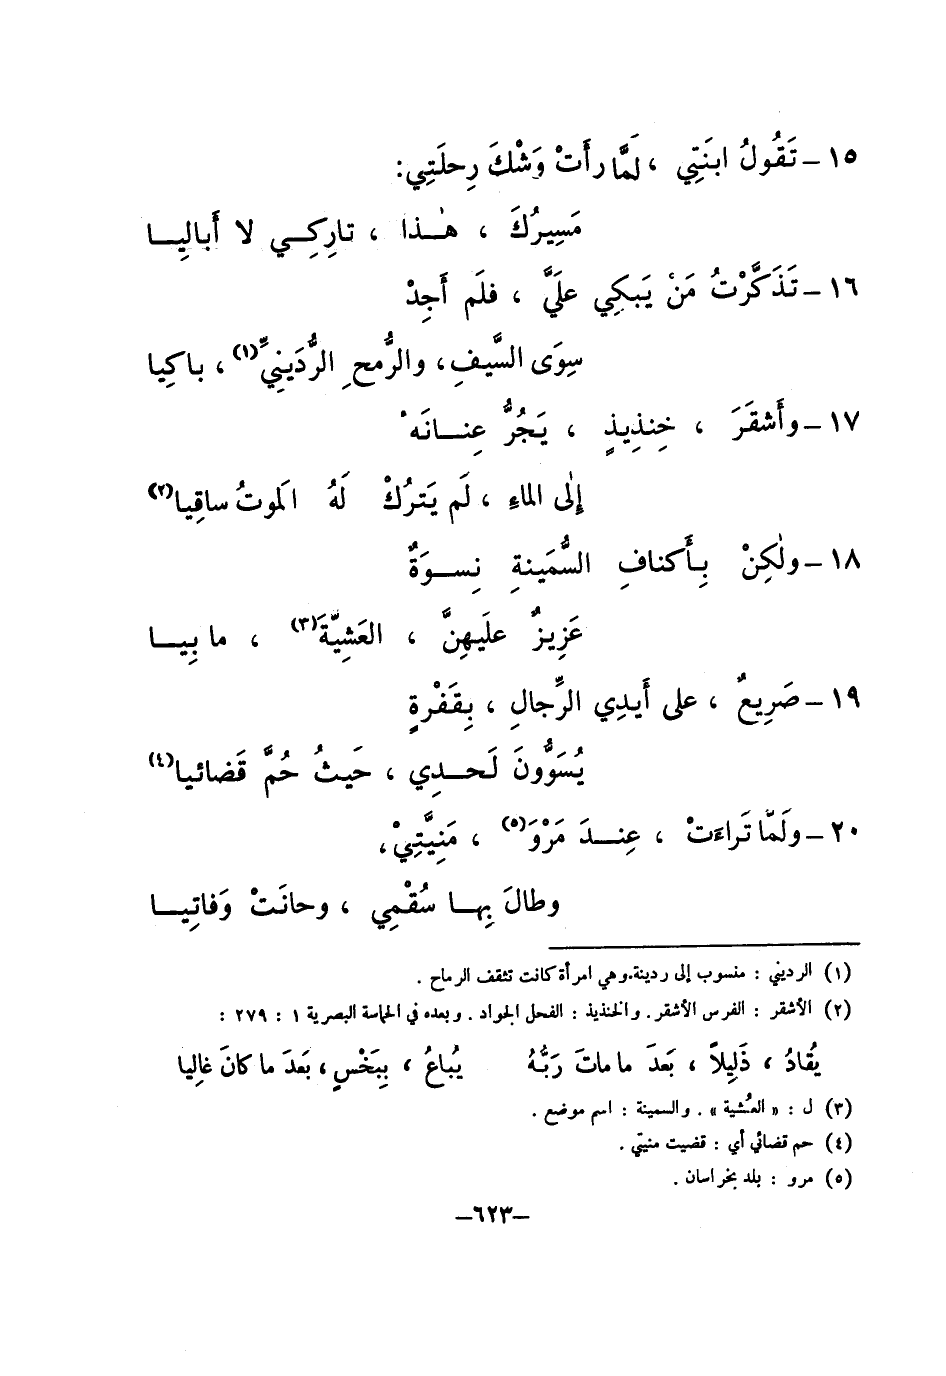 ١٥ – تَقُولُ ابنَتِي ، لَمَّا رأَتْ وَشْكَ رِحلَتِي :
مَسِيرُكَ ، هٰــذا ، تارِكِــي لا أَبالِيــا
١٦ – تَذَكَّرْتُ مَنْ يَبكِي علَيَّ ، فلَم أَجِدْ
سِوَى السَّيفِ، والرُّمحِ الرُّدَينِيِّ(١) ، باكِيا
١٧ – وأَشقَرَ ، خِنذِيذٍ ، يَجُرُّ عِنــانَهُ
إِلٰى الماءِ ، لَم يَترُكْ لَهُ المَوتُ ساقِيا(٢)
١٨ – ولٰكِنْ بِأَكنافِ السُّمَينةِ نِســوَةٌ
عَزِيزٌ علَيهِنَّ ، العَشِيَّةَ(٣) ، ما بِيــا
١٩ – صَرِيعٌ ، على أَيدِي الرِّجالِ ، بِقَفْرةٍ
يُسَوُّونَ لَحــدِي ، حَيثُ حُمَّ قَضائيا(٤)
٢٠ – ولَمّا تَراءَتْ ، عِنــدَ مَرْوَ(٥) ، مَنِيَّتِيْ ،
وطالَ بِهــا سُقْمِي ، وحانَتْ وَفاتِيــا
(١) الرديني : منسوب إلى ردينة. وهي امرأة كانت تثقف الرماح .
(٢) الأشقر : الفرس الأشقر. والخنذيذ : الفحل الجواد . وبعده في الحماسة البصرية ١ : ٢٧٩ :
يُقادُ ، ذَلِيلاً ، بَعدَ ما ماتَ رَبُّهُ يُباعُ ، بِبَخْسٍ ، بَعدَ ما كانَ غالِيا
(٣) ل : « العُشية » . والسمينة : اسم موضع .
(٤) حم قضائي أي : قضيت منيتي .
(٥) مرو : بلد بخراسان .
–٦٢٣–